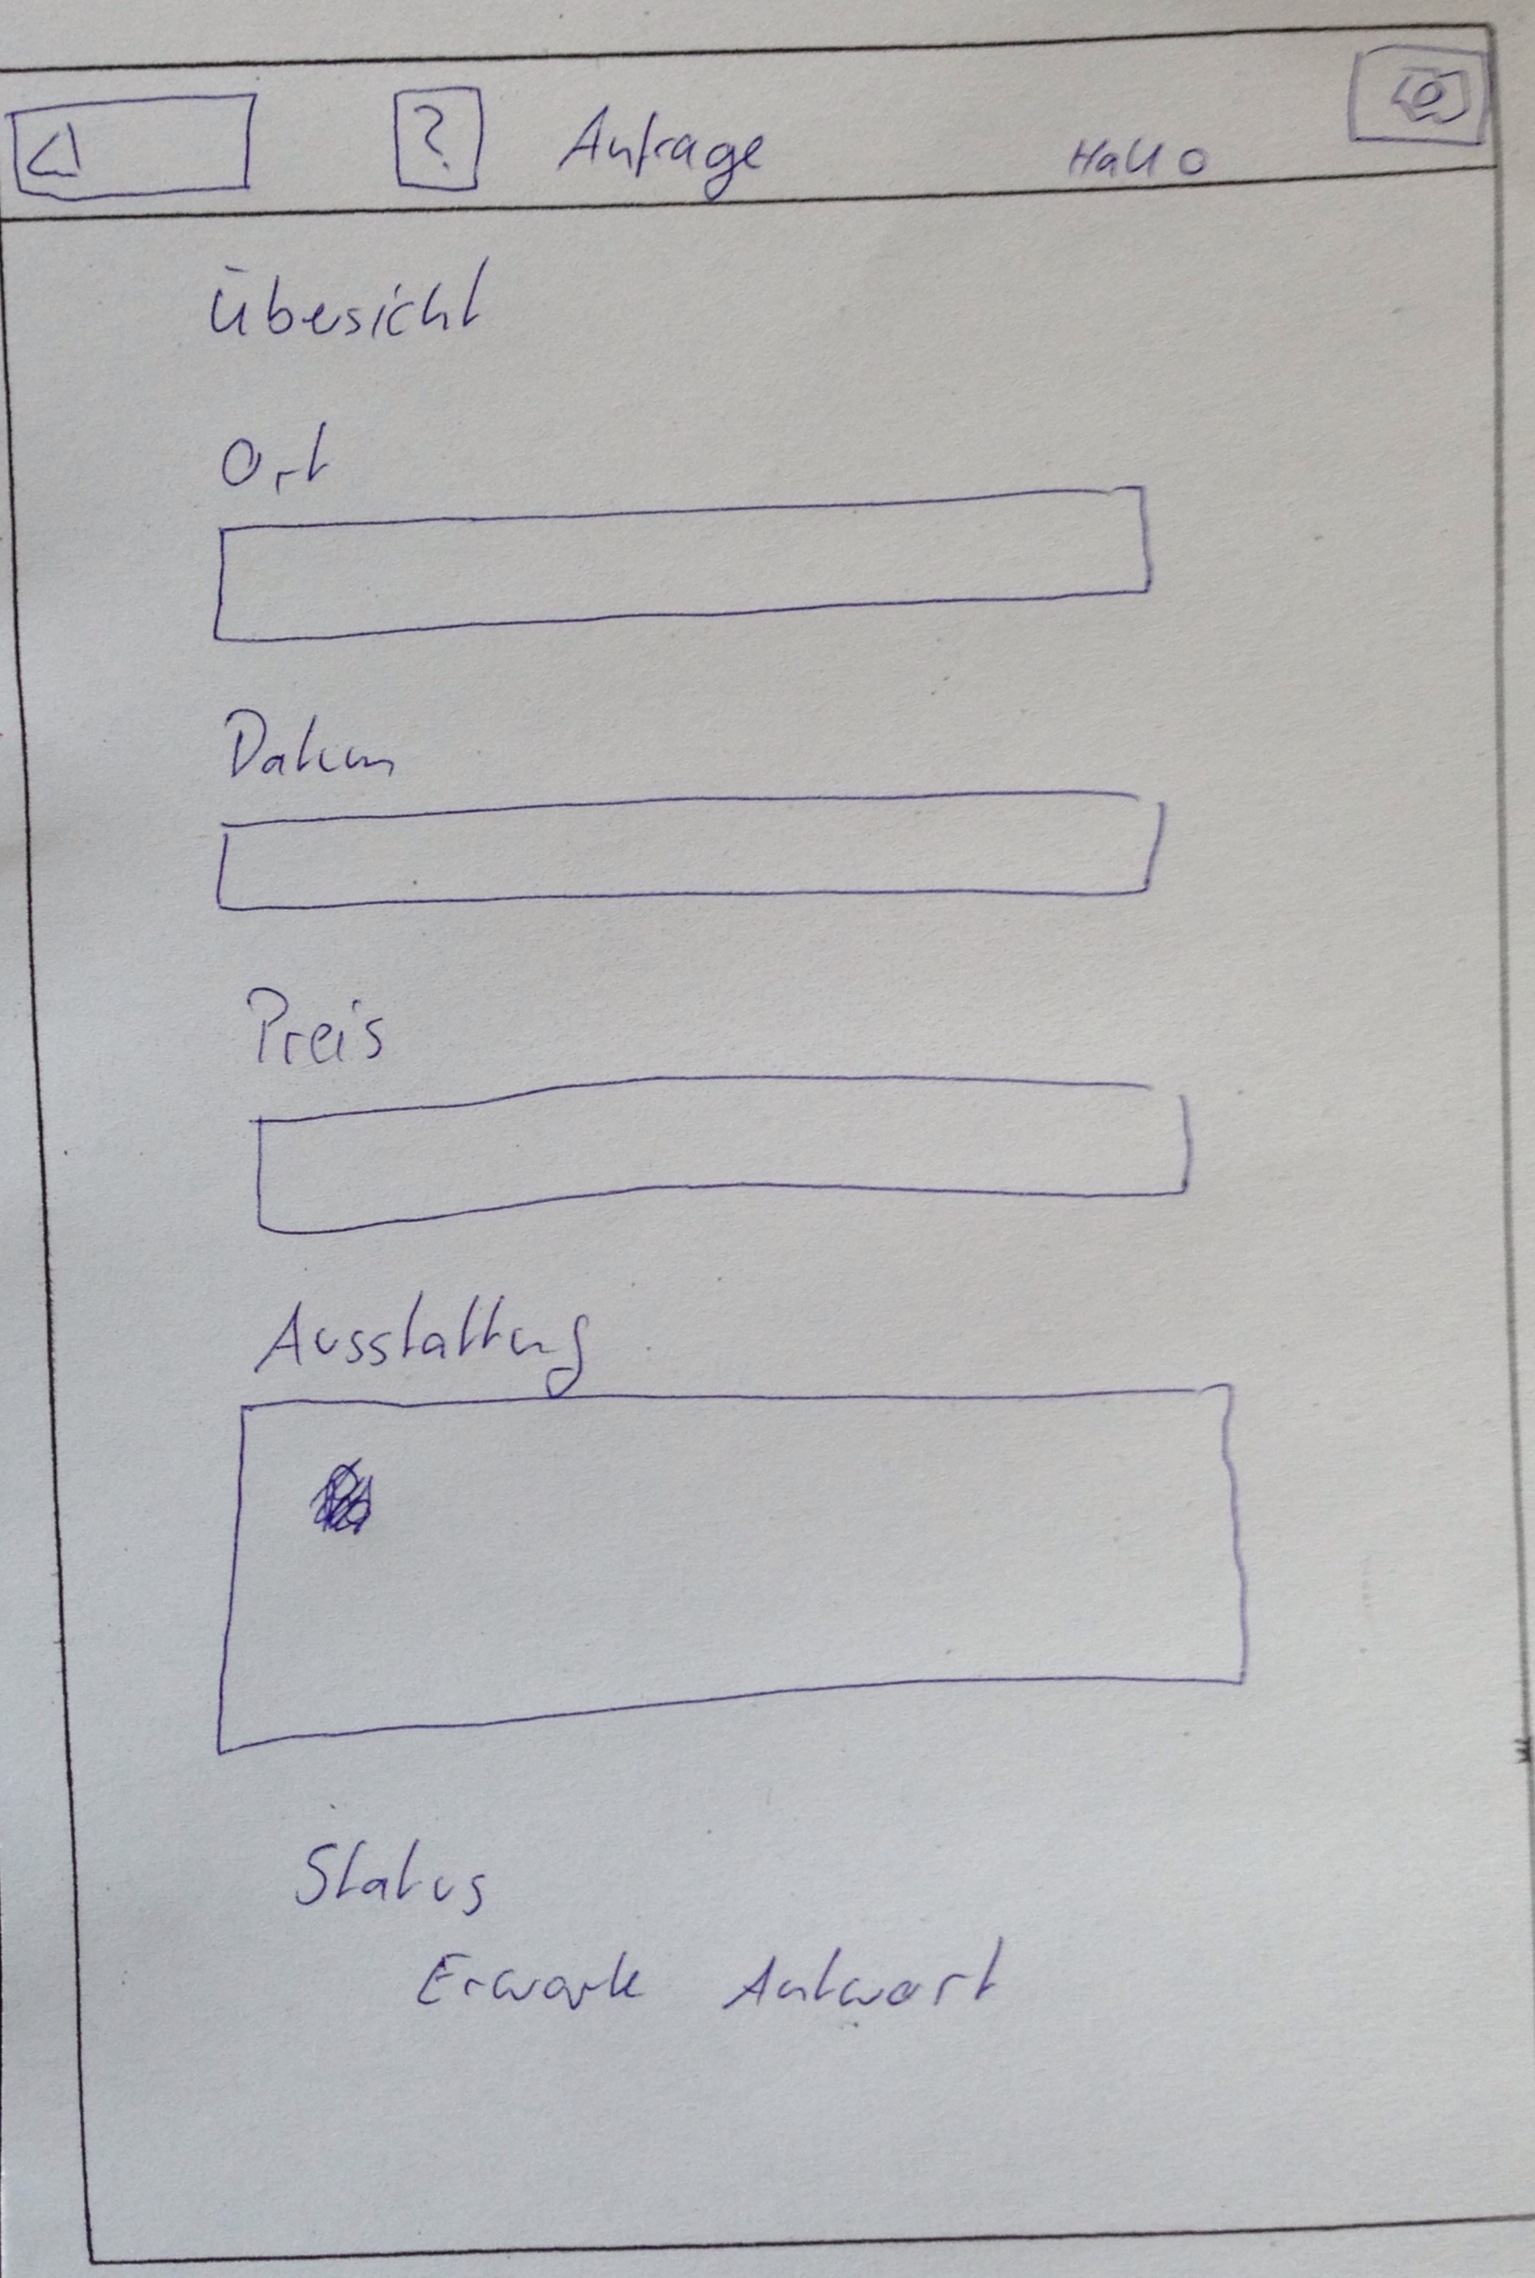 ? Anfrage Hallo
Übesicht
Ort
Datum
Preis
Ausstattung
Status
Erwarte Antwort